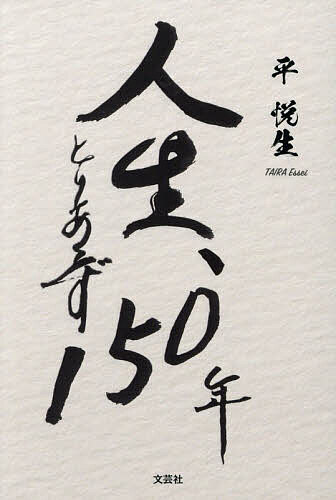 人生、
とりあえず
150年
平 悦生
TAIRA Essei
文芸社